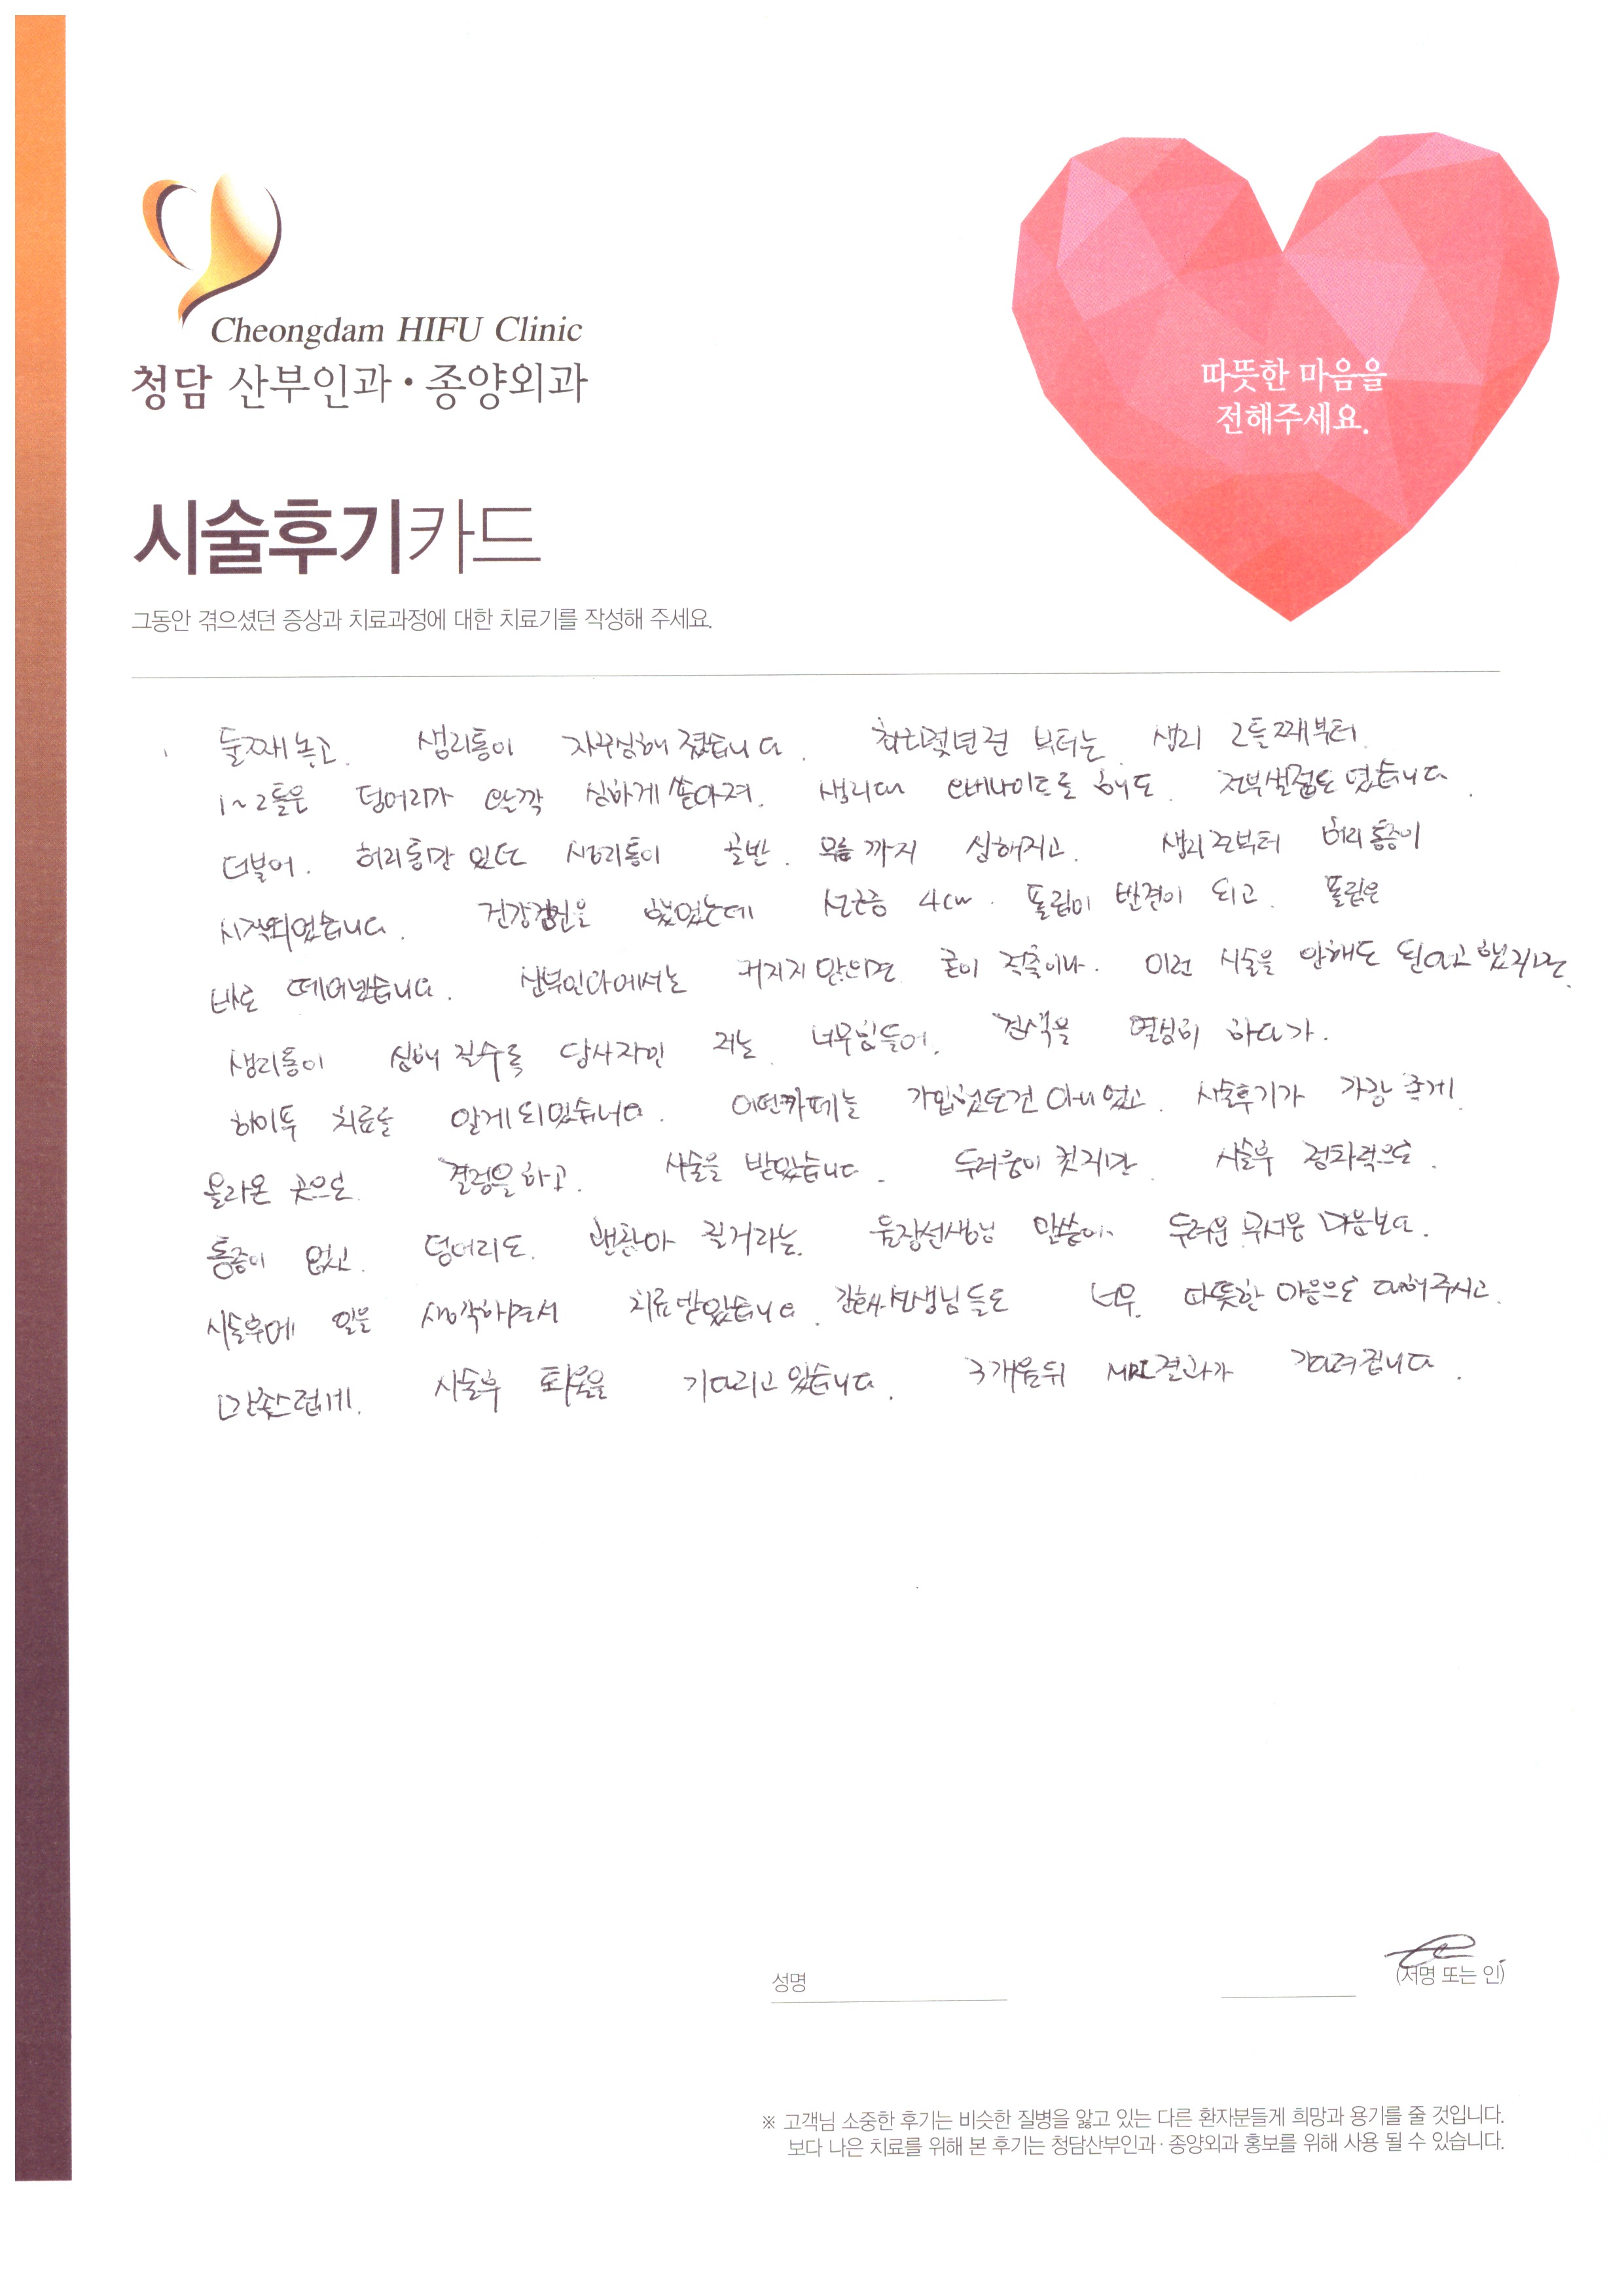 Cheongdam HIFU Clinic
청담 산부인과·종양외과
따뜻한 마음을
전해주세요.
시술후기카드
그동안 겪으셨던 증상과 치료과정에 대한 치료기를 작성해 주세요.
둘째 놓고. 생리통이 자꾸심해 졌습니다. 최근몇년전 부터는 생리 2틀째부터
1~2틀은 덩어리가 왈깍 심하게 쏟아져. 생리대 오버나이트를 해도. 전부샐정도 였습니다.
더불어. 허리통만 있던 생리통이 골반. 무릎까지 심해지고. 생리전부터 허리통증이
시작되었습니다. 건강검진을 했었는데 선근증 4cm. 폴립이 발견이 되고. 폴립은
바로 떼어냈습니다. 산부인과에서는 커지지 않으면 굳이 적출이나. 이런 시술을 안해도 된다고 했지만.
생리통이 심해 질수록 당사자인 저는 너무힘들어. 검색을 열심히 하다가.
하이푸 치료를 알게되었습니다. 어떤카페는 가입했던건 아니었고. 시술후기가 가장 크게
올라온 곳으로. 결정을하고. 시술을 받았습니다. 두려움이 컷지만 시술후 정화력으로.
통증이 없고. 덩어리도. 괜찮아 질거라는. 원장선생님 말씀이. 두려운 무서운 마음보다.
시술후에 일을 생각하면서 치료받았습니다. 간호사선생님들도 너무. 따뜻한 마음으로 대해주시고.
만족스럽게. 시술후 회복을 기다리고 있습니다. 3개월뒤 MRI결과가 기다려집니다.
성명
(서명 또는 인)
※ 고객님 소중한 후기는 비슷한 질병을 앓고 있는 다른 환자분들게 희망과 용기를 줄 것입니다.
보다 나은 치료를 위해 본 후기는 청담산부인과·종양외과 홍보를 위해 사용 될 수 있습니다.